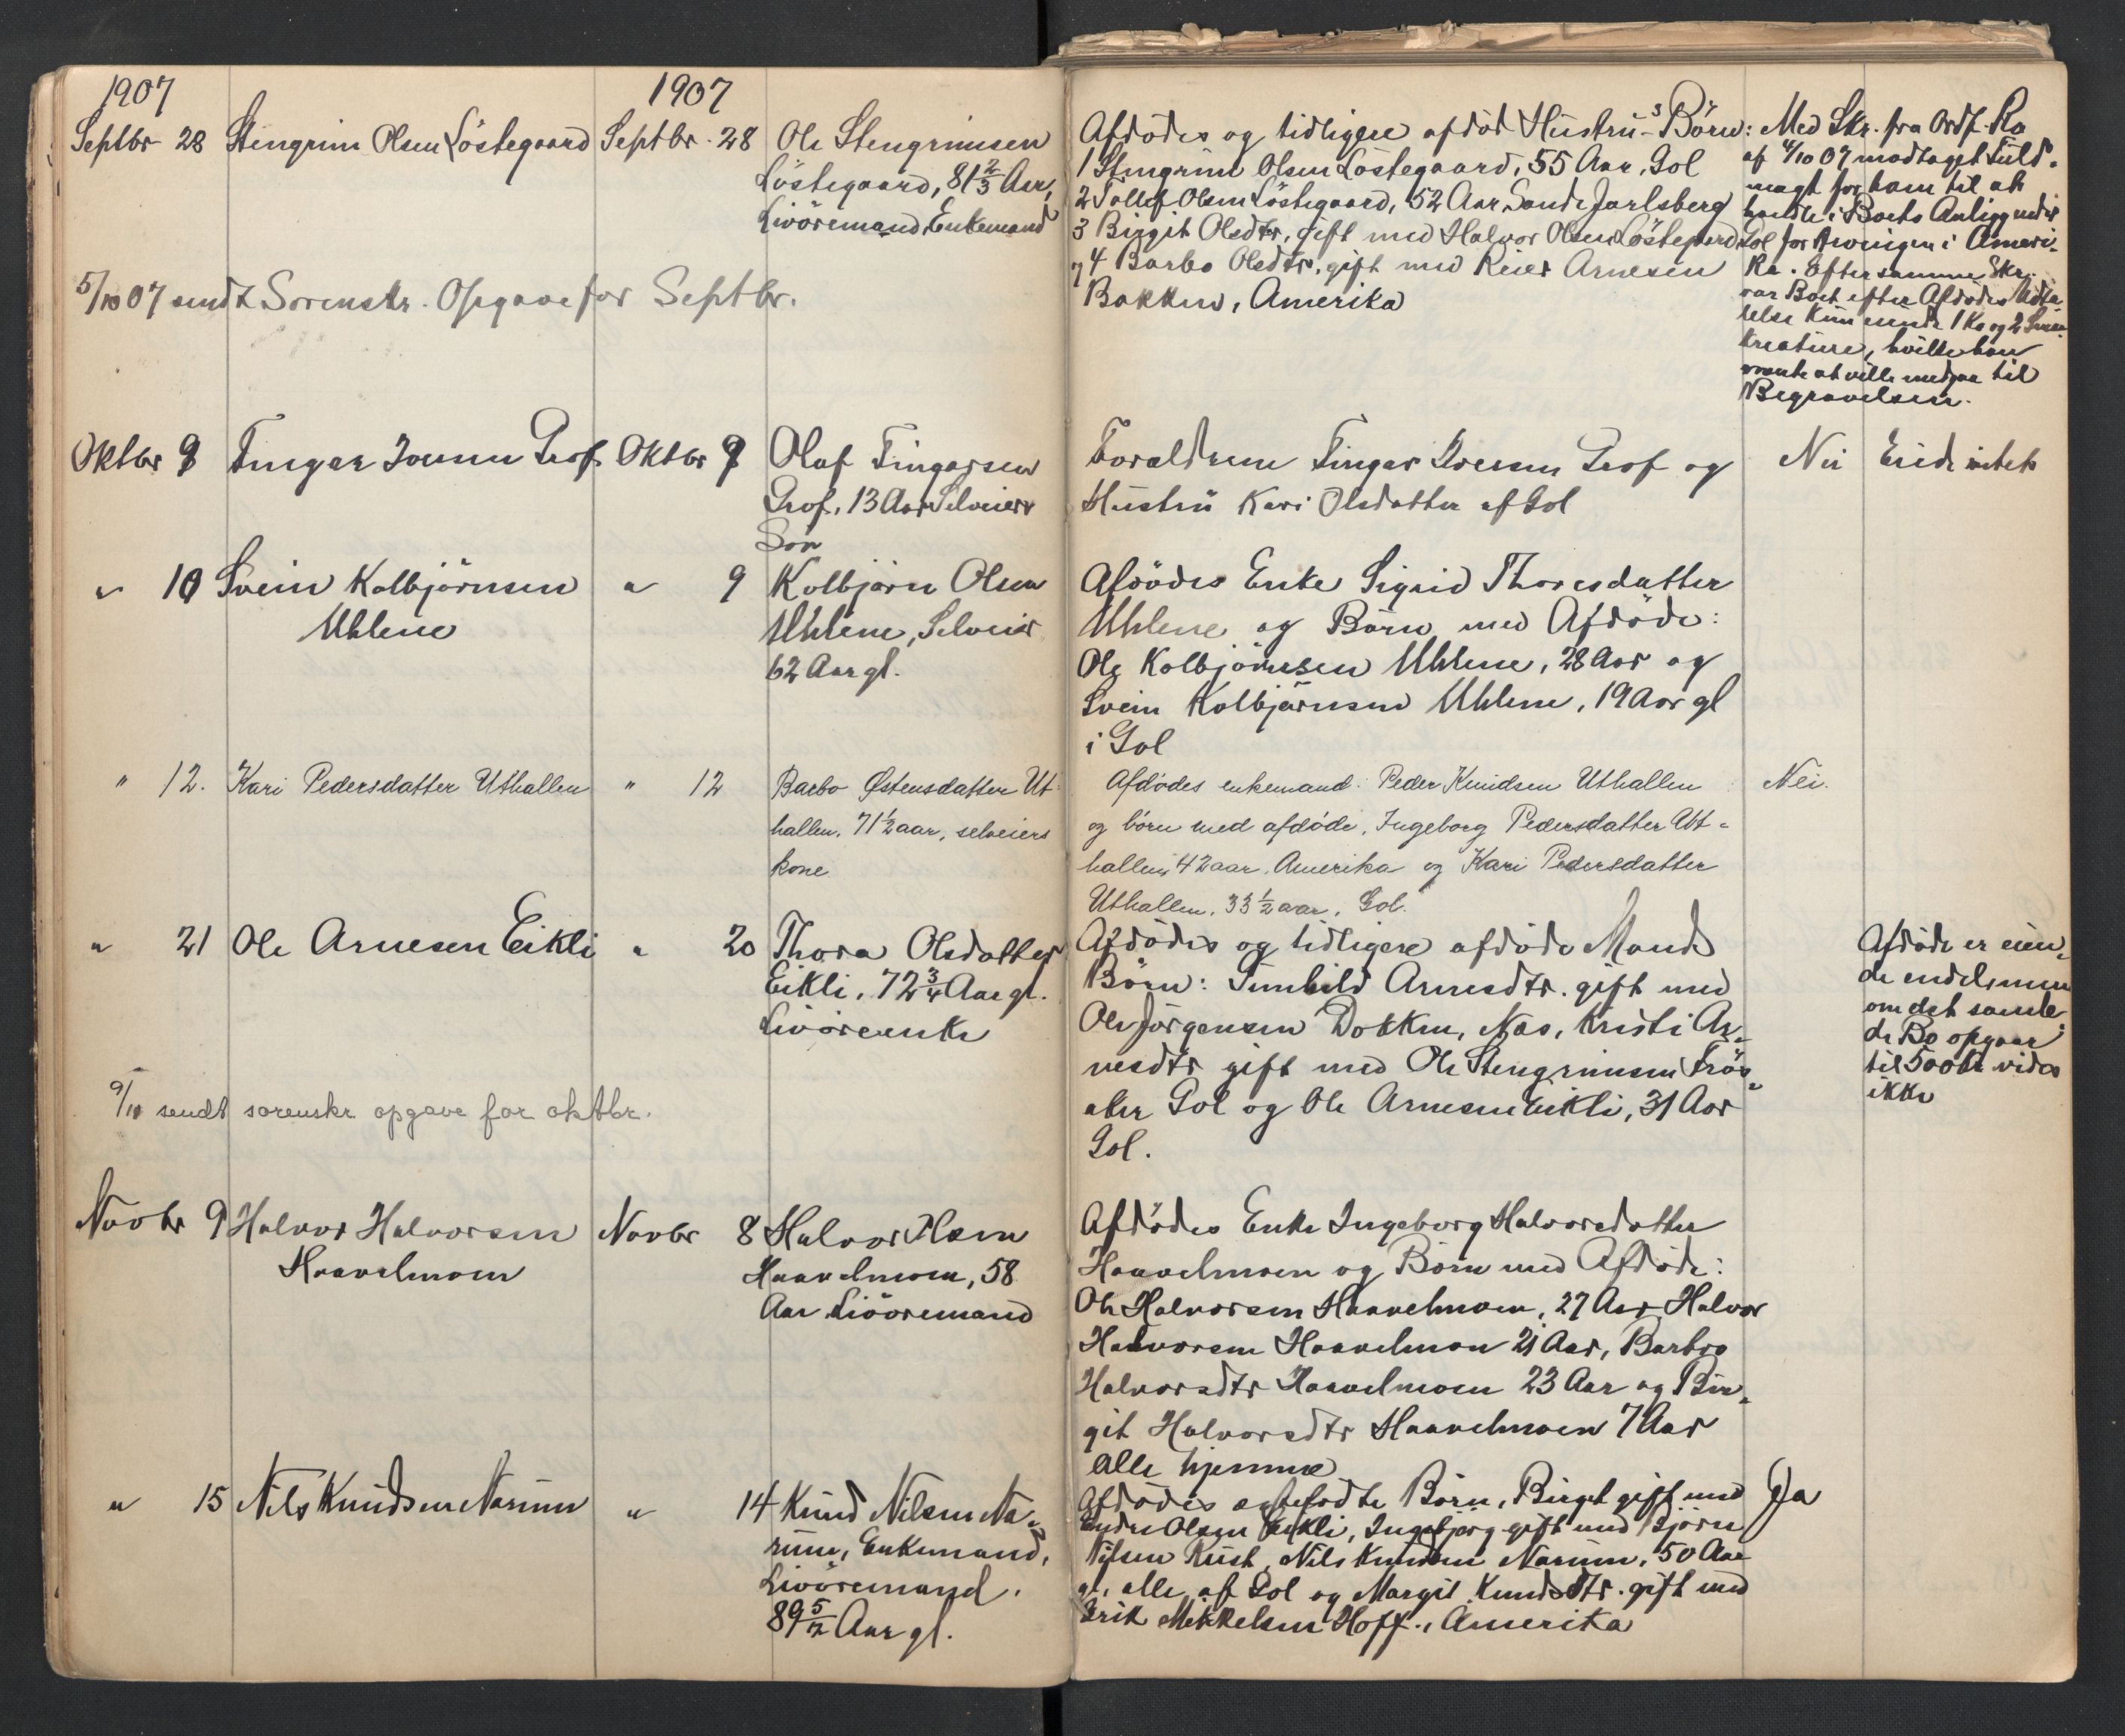 1907
1907
Septbr 28 Stengrim Olsen Löstegaard Septbr. 28 Ole Stengrimsen
Löstegaard, 81 2/3 Aar,
Livöremand, Enkemand
Afdödes og tidligere afdöd Hustru's Börn:
1 Stengrim Olsen Löstegaard, 55 Aar, Gol
2 Tollef Olsen Löstegaard, 52 Aar, Sande Jarlsberg
3 Birgit Olsdtr, gift med Halvor Olsen Löstegaard Gol
4 Barbo Olsdtr. gift med Reier Arnesen
Bakken, Amerika
Med Skr. fra Ordf. Ro
af 4/10 07 modtaget Fuld-
magt for ham til at
handle i Boets Anliggender
for Arvingen i Ameri-
ka. Efter samme Skr.
var Boet efter Afdödes Udta-
lelse kun eiende 1 Ko og 2 Smaa-
kreature, hvilke han
vente at ville medgaa til
Begravelsen.
5/10 07 sendt Sorenskr. Opgave for Septbr.
Oktbr 9 Tingar Iversen Grof Oktbr 9 Olaf Tingarsen
Grof, 13 Aar Selveiers
Sön
Foraldrene Tingar Iversen Grof og
Hustru Kari Olsdatter af Gol
Nei Eiede intet
" 10 Svein Kolbjörnsen
Uhlene
" 9 Kolbjörn Olsen
Uhlene, Selveier
62 Aar gl.
Afdödes Enke Sigrid Thoresdatter
Uhlene og Börn med Afdöde:
Ole Kolbjörnsen Uhlene, 28 Aar og
Svein Kolbjörnsen Uhlene, 19 Aar gl
i Gol
" 12. Kari Pedersdatter Uthallen " 12 Barbo Østensdatter Ut-
hallen. 71 1/2 aar, selveiers
kone
Afdödes enkemand: Peder Knudsen Uthallen
og börn med afdöde, Ingeborg Pedersdatter Ut-
hallen, 42 aar, Amerika og Kari Pedersdatter
Uthallen, 33 1/2 aar, Gol.
Nei.
" 21 Ole Arnesen Eikli " 20 Thora Olsdatter
Eikli, 72 3/4 Aar gl.
Livöreenke
Afdödes og tidligere afdöde Mands
Börn: Gunhild Arnesdtr. gift med
Ole Jörgensen Dokken, Næs, Kristi Ar-
nesdtr gift med Ole Stengrimsen Frös-
aker Gol og Ole Arnesen Eikli, 31 Aar
Gol.
Afdöde er eien-
de endel, men
om det samle-
de Bo opgaar
til 500 kr vides
ikke
9/11 sendt sorenskr opgave for oktbr.
Novbr 9 Halvor Halvorsen
Haavelmoen
Novbr 8 Halvor Olsen
Haavelmoen, 58
Aar Livöremand
Afdödes Enke Ingeborg Halvorsdatter
Haavelmoen og Börn med Afdöde:
Ole Halvorsen Haavelmoen, 27 Aar, Halvor
Halvorsen Haavelmoen 21 Aar, Barbro
Halvorsdtr Haavelmoen 23 Aar og Bir-
git Halvorsdtr Haavelmoen 7 Aar
alle hjemme
" 15 Nils Knudsen Narum " 14 Knud Nilsen Na-
rum, Enkemand,
Livöremand.
89 5/12 Aar gl.
Afdödes ægtefödte Börn, Birgit gift med
Endre Olsen Eikli, Ingebjörg gift med Björn
Nilsen Rust, Nils Knudsen Narum, 50 Aar
gl., alle af Gol og Margit Knudsdtr. gift med
Erik Mekkelsen Hoff., Amerika
Ja